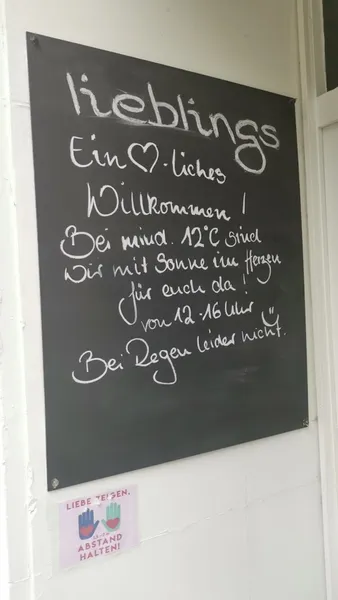 lieblings
Ein ♡-liches
Willkommen!
Bei mind. 12°C sind
wir mit Sonne im Herzen
für euch da!
von 12-16 Uhr
Bei Regen leider nicht.
LIEBE ZEIGEN,
ABSTAND
HALTEN!